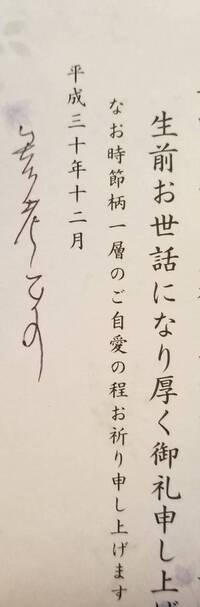 生前お世話になり厚く御礼申し上げ
なお時節柄一層のご自愛の程お祈り申し上げます
平成三十年十二月